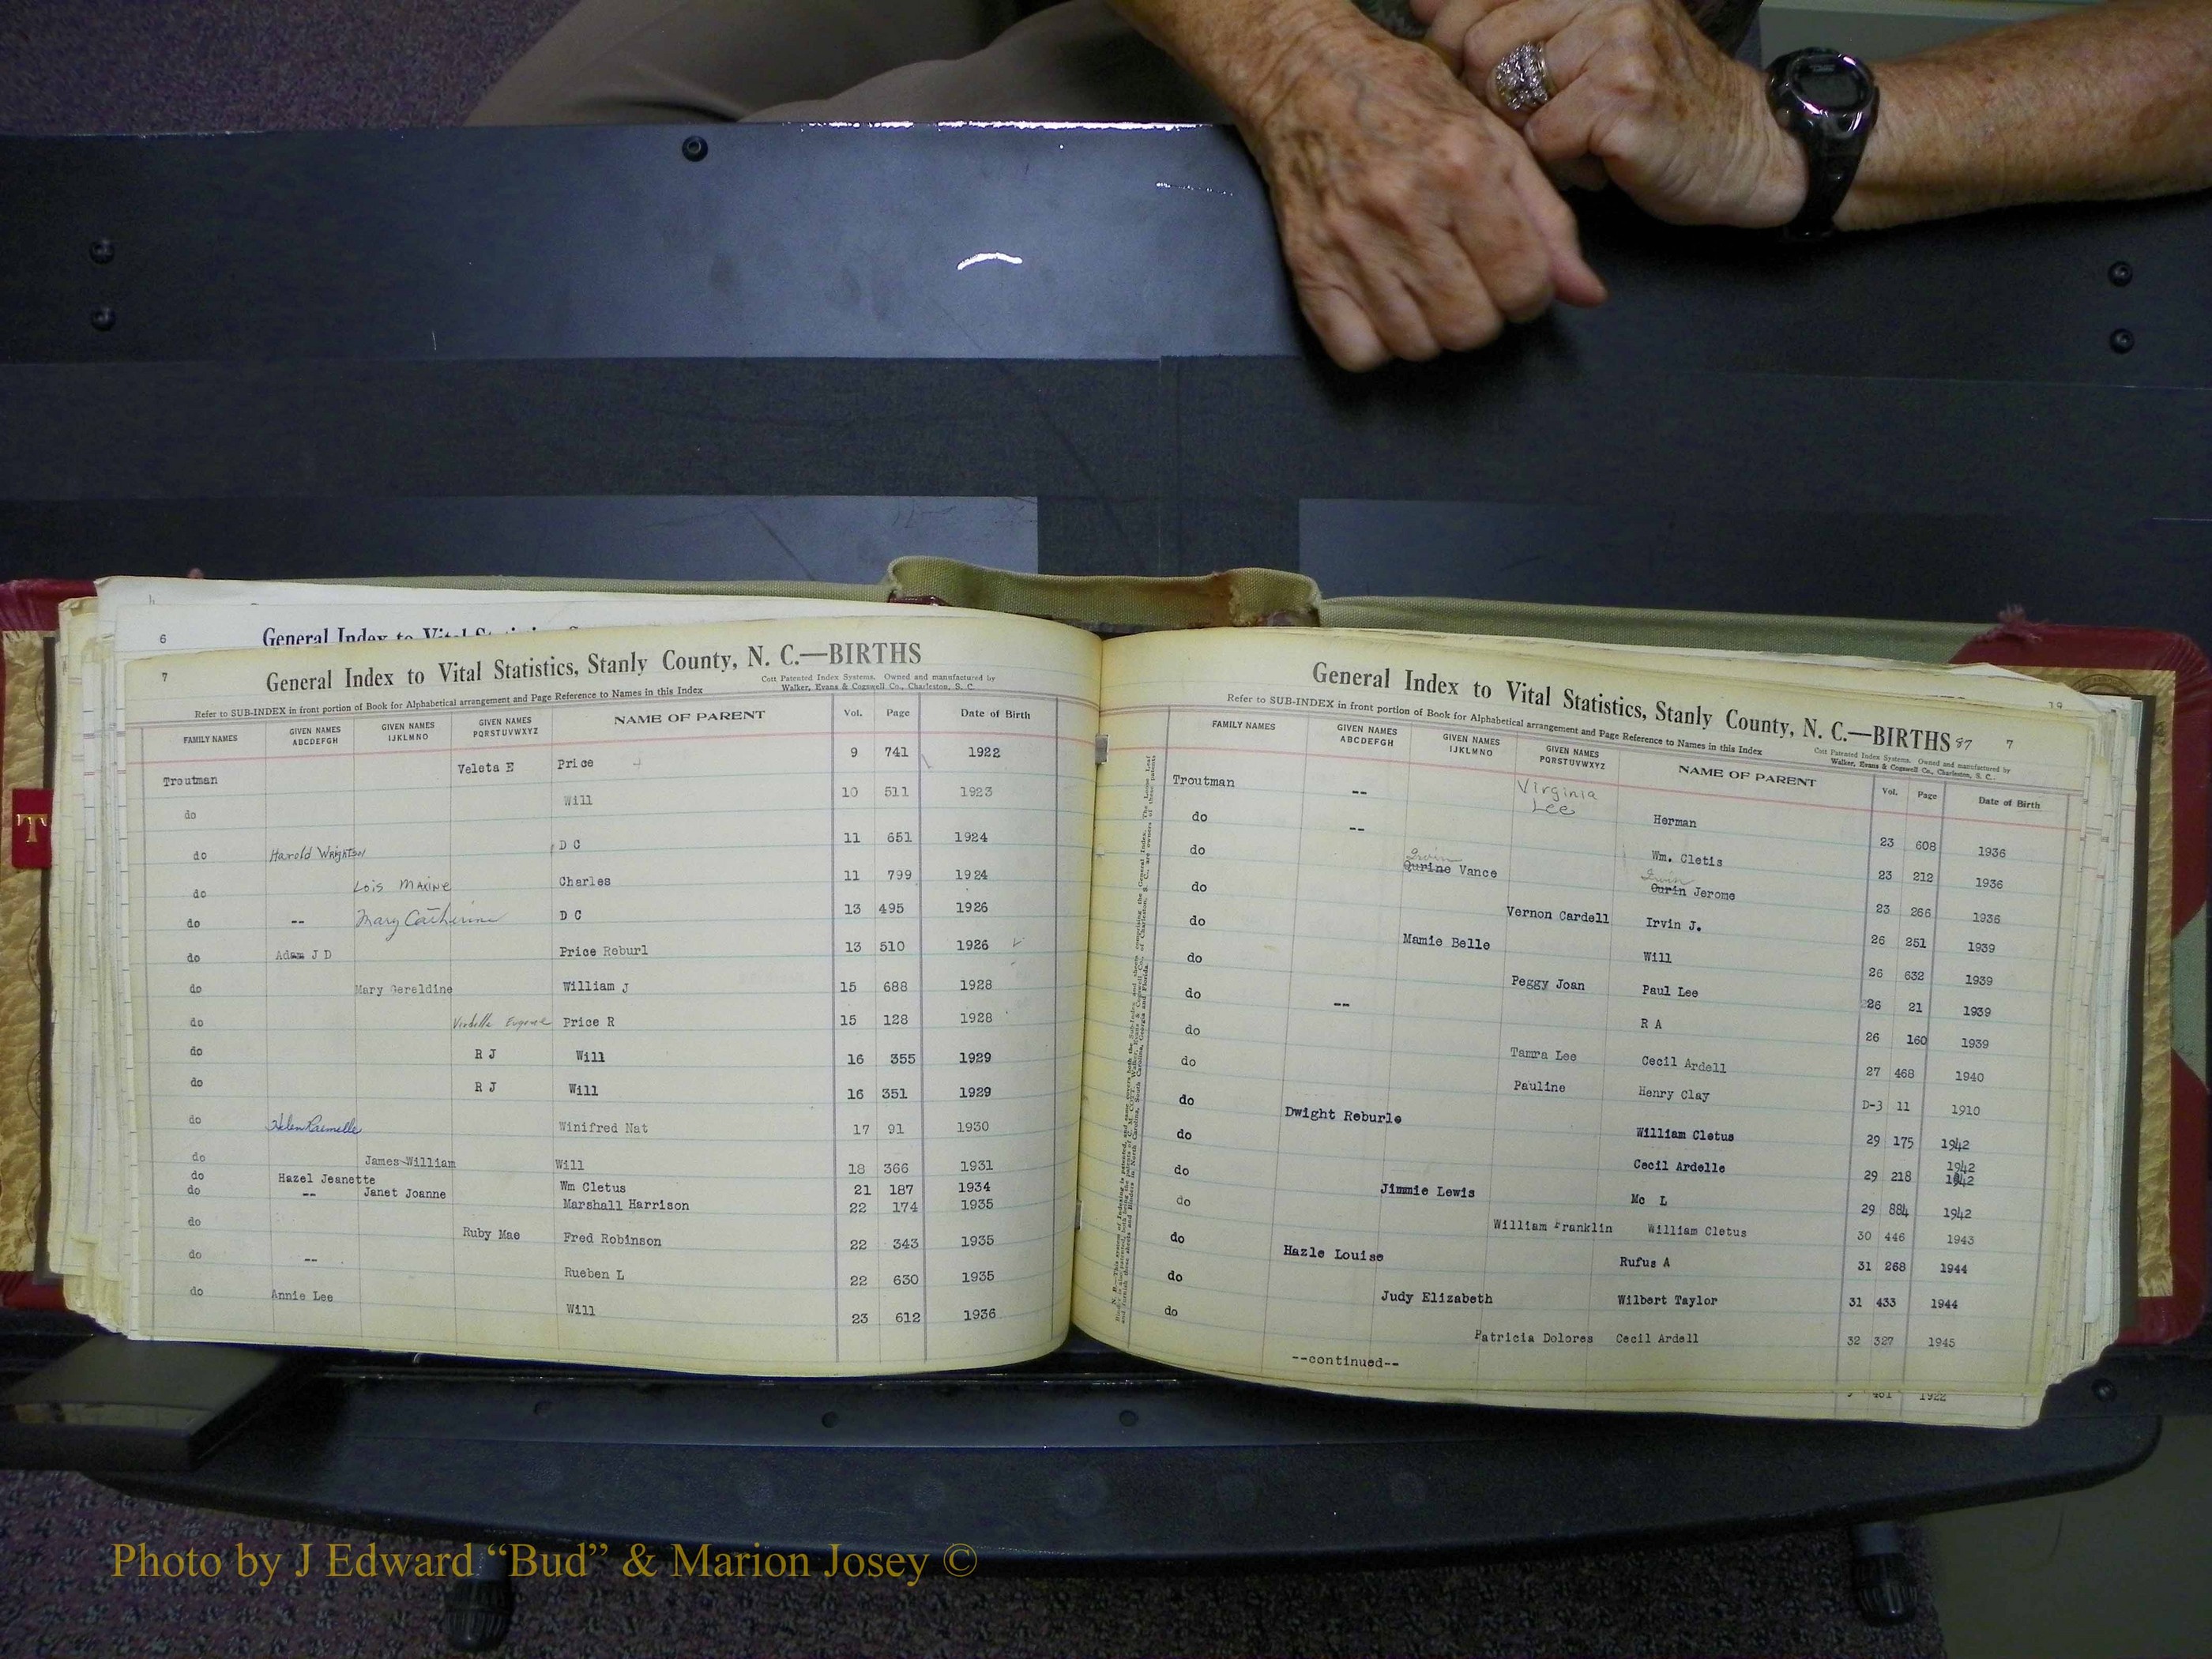 6
General Index to Vital Statistics, S
7
General Index to Vital Statistics, Stanly County, N. C.—BIRTHS
Refer to SUB-INDEX in front portion of Book for Alphabetical arrangement and Page Reference to Names in this Index
Cott Patented Index Systems. Owned and manufactured by
Walker, Evans & Cogswell Co., Charleston, S. C.
FAMILY NAMES GIVEN NAMES ABCDEFGH GIVEN NAMES IJKLMNO GIVEN NAMES PQRSTUVWXYZ NAME OF PARENT Vol. Page Date of Birth
Troutman Veleta E Price 9 741 1922
do Will 10 511 1923
do Harold Wrightsel D C 11 651 1924
do Lois Maxine Charles 11 799 1924
do -- Mary Catherine D C 13 495 1926
do Adam J D Price Reburl 13 510 1926
do Mary Gereldine William J 15 688 1928
do Eugene Price R 15 128 1928
do R J Will 16 355 1929
do R J Will 16 351 1929
do Helen Winifred Nat 17 91 1930
do James William Will 18 366 1931
do Hazel Jeanette Wm Cletus 21 187 1934
do -- Janet Joanne Marshall Harrison 22 174 1935
do Ruby Mae Fred Robinson 22 343 1935
do -- Rueben L 22 630 1935
do Annie Lee Will 23 612 1936
T
19
General Index to Vital Statistics, Stanly County, N. C.—BIRTHS 87 7
Refer to SUB-INDEX in front portion of Book for Alphabetical arrangement and Page Reference to Names in this Index
Cott Patented Index Systems. Owned and manufactured by
Walker, Evans & Cogswell Co., Charleston, S. C.
FAMILY NAMES GIVEN NAMES ABCDEFGH GIVEN NAMES IJKLMNO GIVEN NAMES PQRSTUVWXYZ NAME OF PARENT Vol. Page Date of Birth
Troutman -- Virginia Lee Herman 23 608 1936
do -- Wm. Cletis 23 212 1936
do Irvin Qurine Vance Irvin Ourin Jerome 23 266 1936
do Vernon Cardell Irvin J. 26 251 1939
do Mamie Belle Will 26 632 1939
do Peggy Joan Paul Lee 26 21 1939
do -- R A 26 160 1939
do Tamra Lee Cecil Ardell 27 468 1940
do Pauline Henry Clay D-3 11 1910
do Dwight Reburle William Cletus 29 175 1942
do Cecil Ardelle 29 218 1942
1942
do Jimmie Lewis Mc L 29 884 1942
do William Franklin William Cletus 30 446 1943
do Hazle Louise Rufus A 31 268 1944
do Judy Elizabeth Wilbert Taylor 31 433 1944
do Patricia Dolores Cecil Ardell 32 327 1945
--continued--
9 461 1922
Photo by J Edward “Bud” & Marion Josey ©